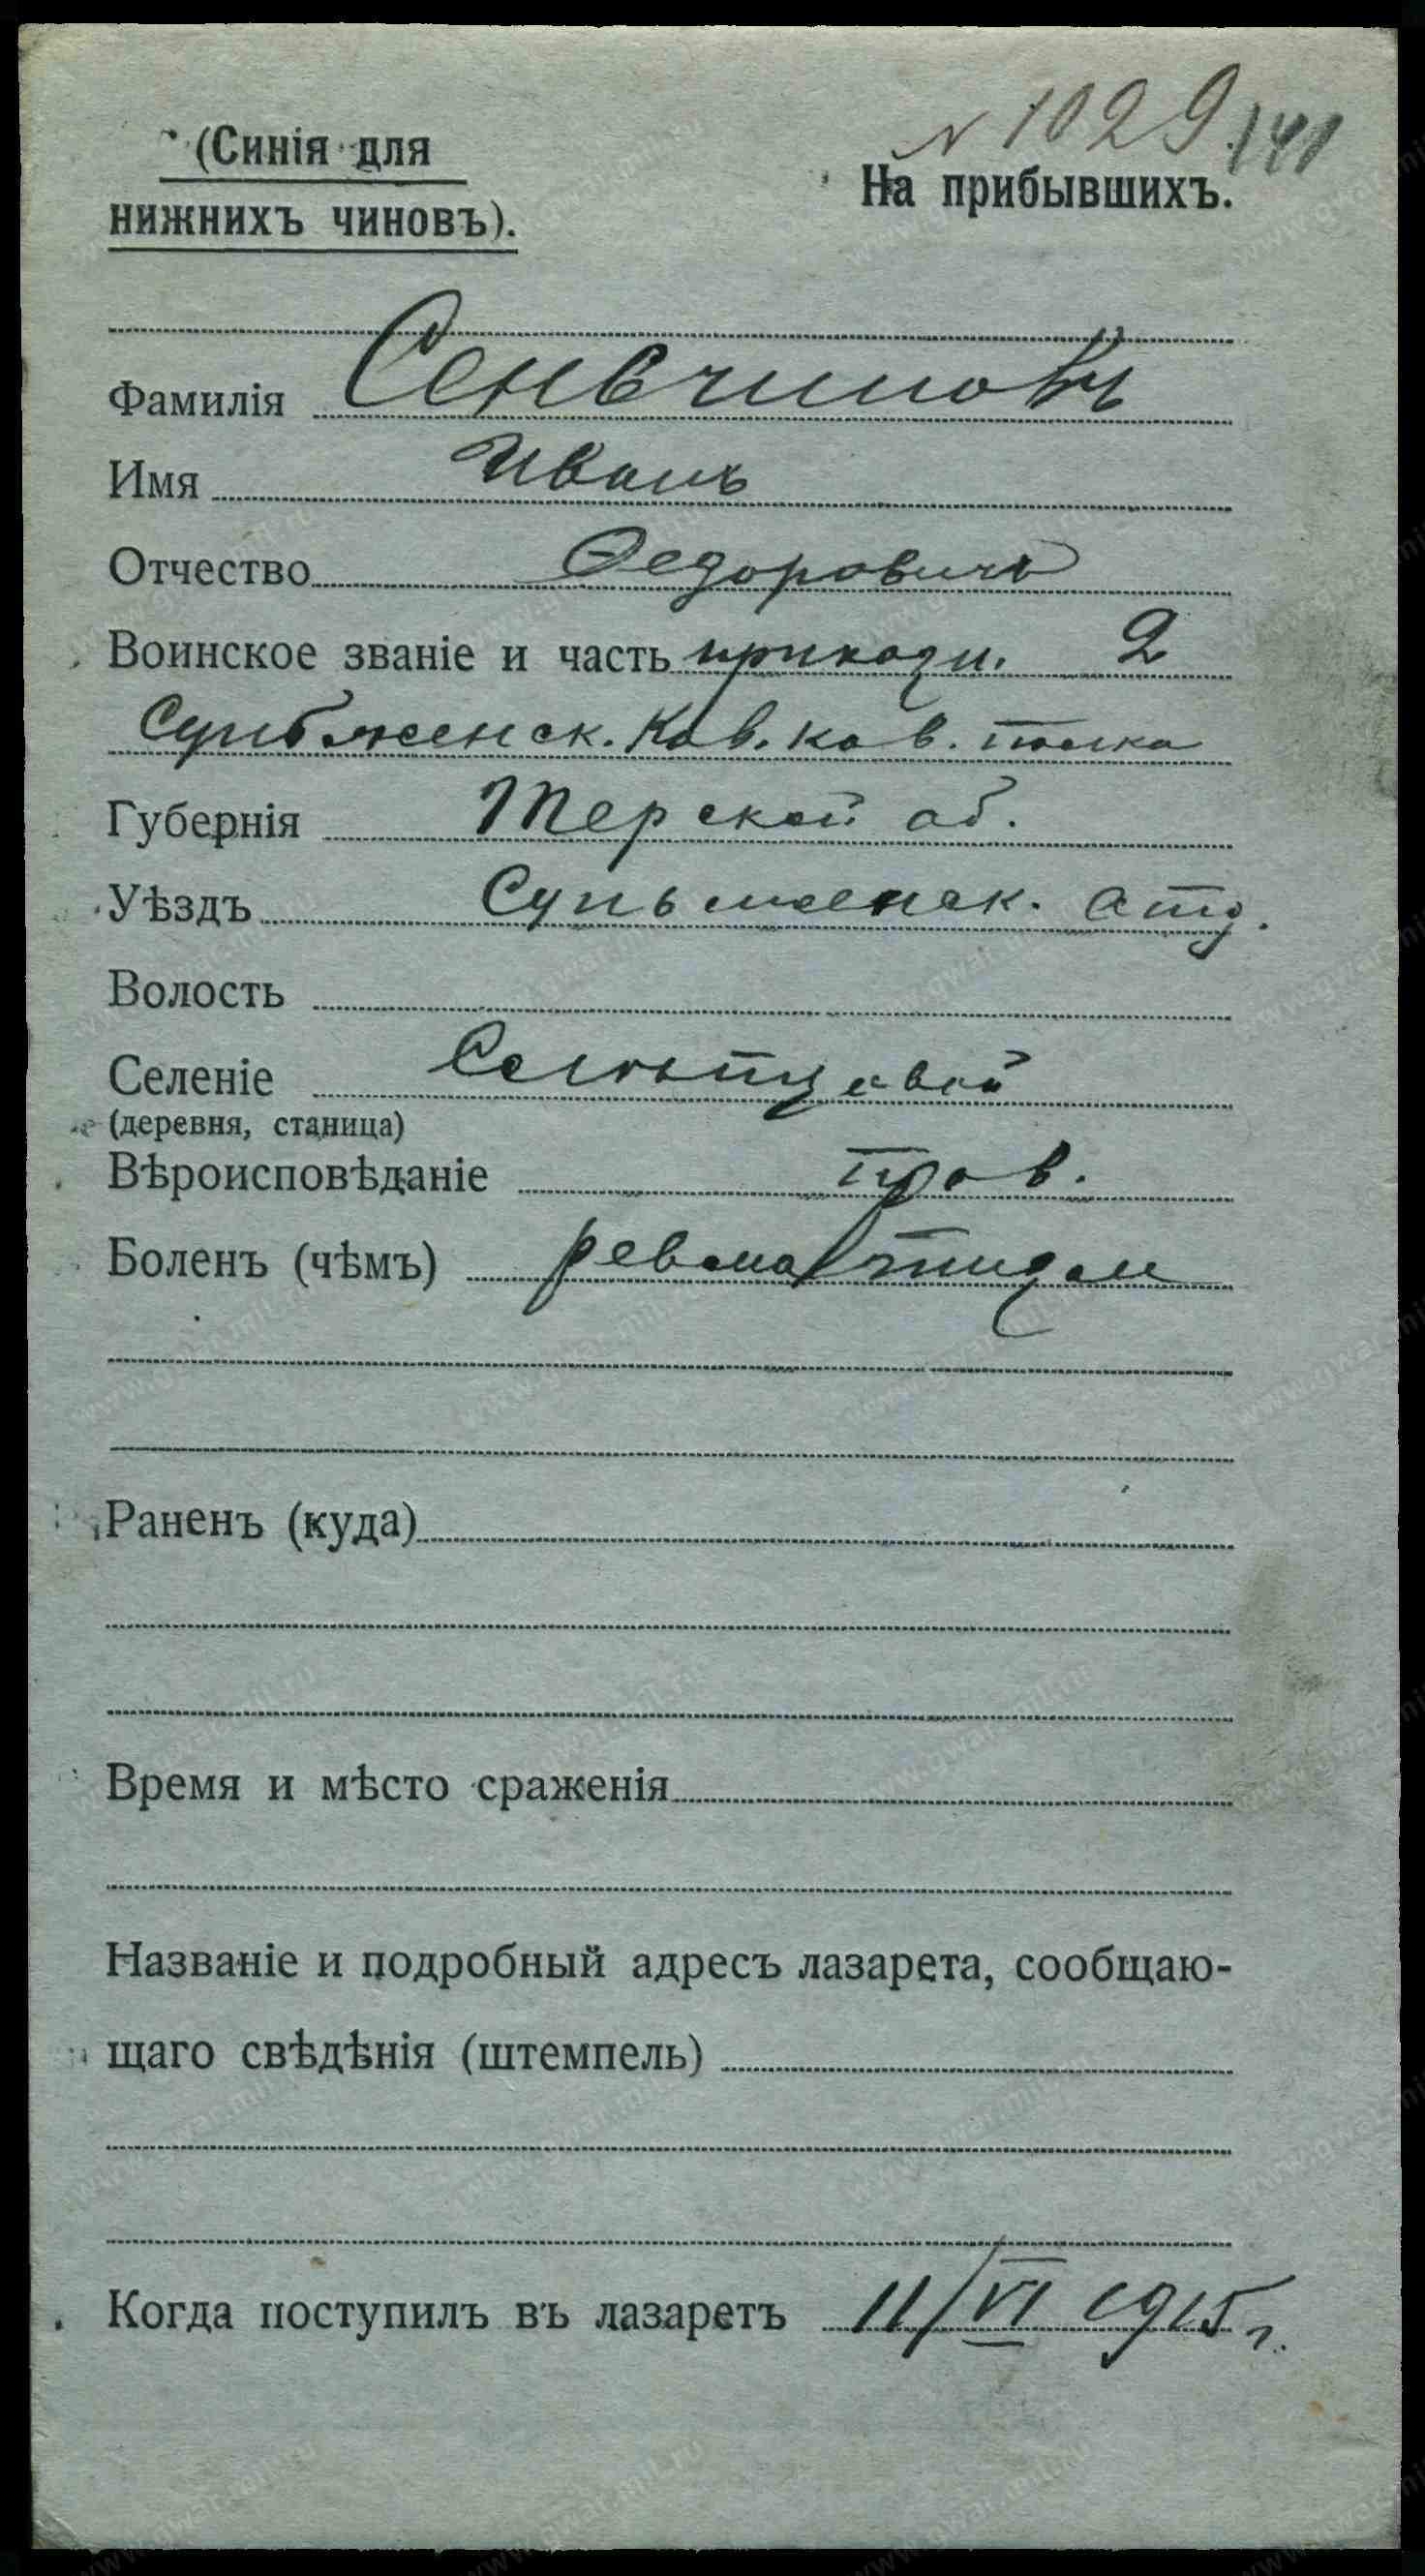 N 1029 141
(Синія для
нижнихъ чиновъ).
На прибывшихъ.
Фамилія Сеньчиновъ
Имя Иванъ
Отчество Ѳедоровичъ
Воинское званіе и часть приказн. 2
Сунбженск. Кав. кав. полка
Губернія Терской об.
Уѣздъ Суньженск. отд.
Волость
Селеніе
(деревня, станица)
Вѣроисповѣданіе прав.
Боленъ (чѣмъ) ревоматизам
Раненъ (куда)
Время и мѣсто сраженія
Названіе и подробный адресъ лазарета, сообщаю-
щаго свѣдѣнія (штемпель)
Когда поступилъ въ лазаретъ 11/VI 1915 г.